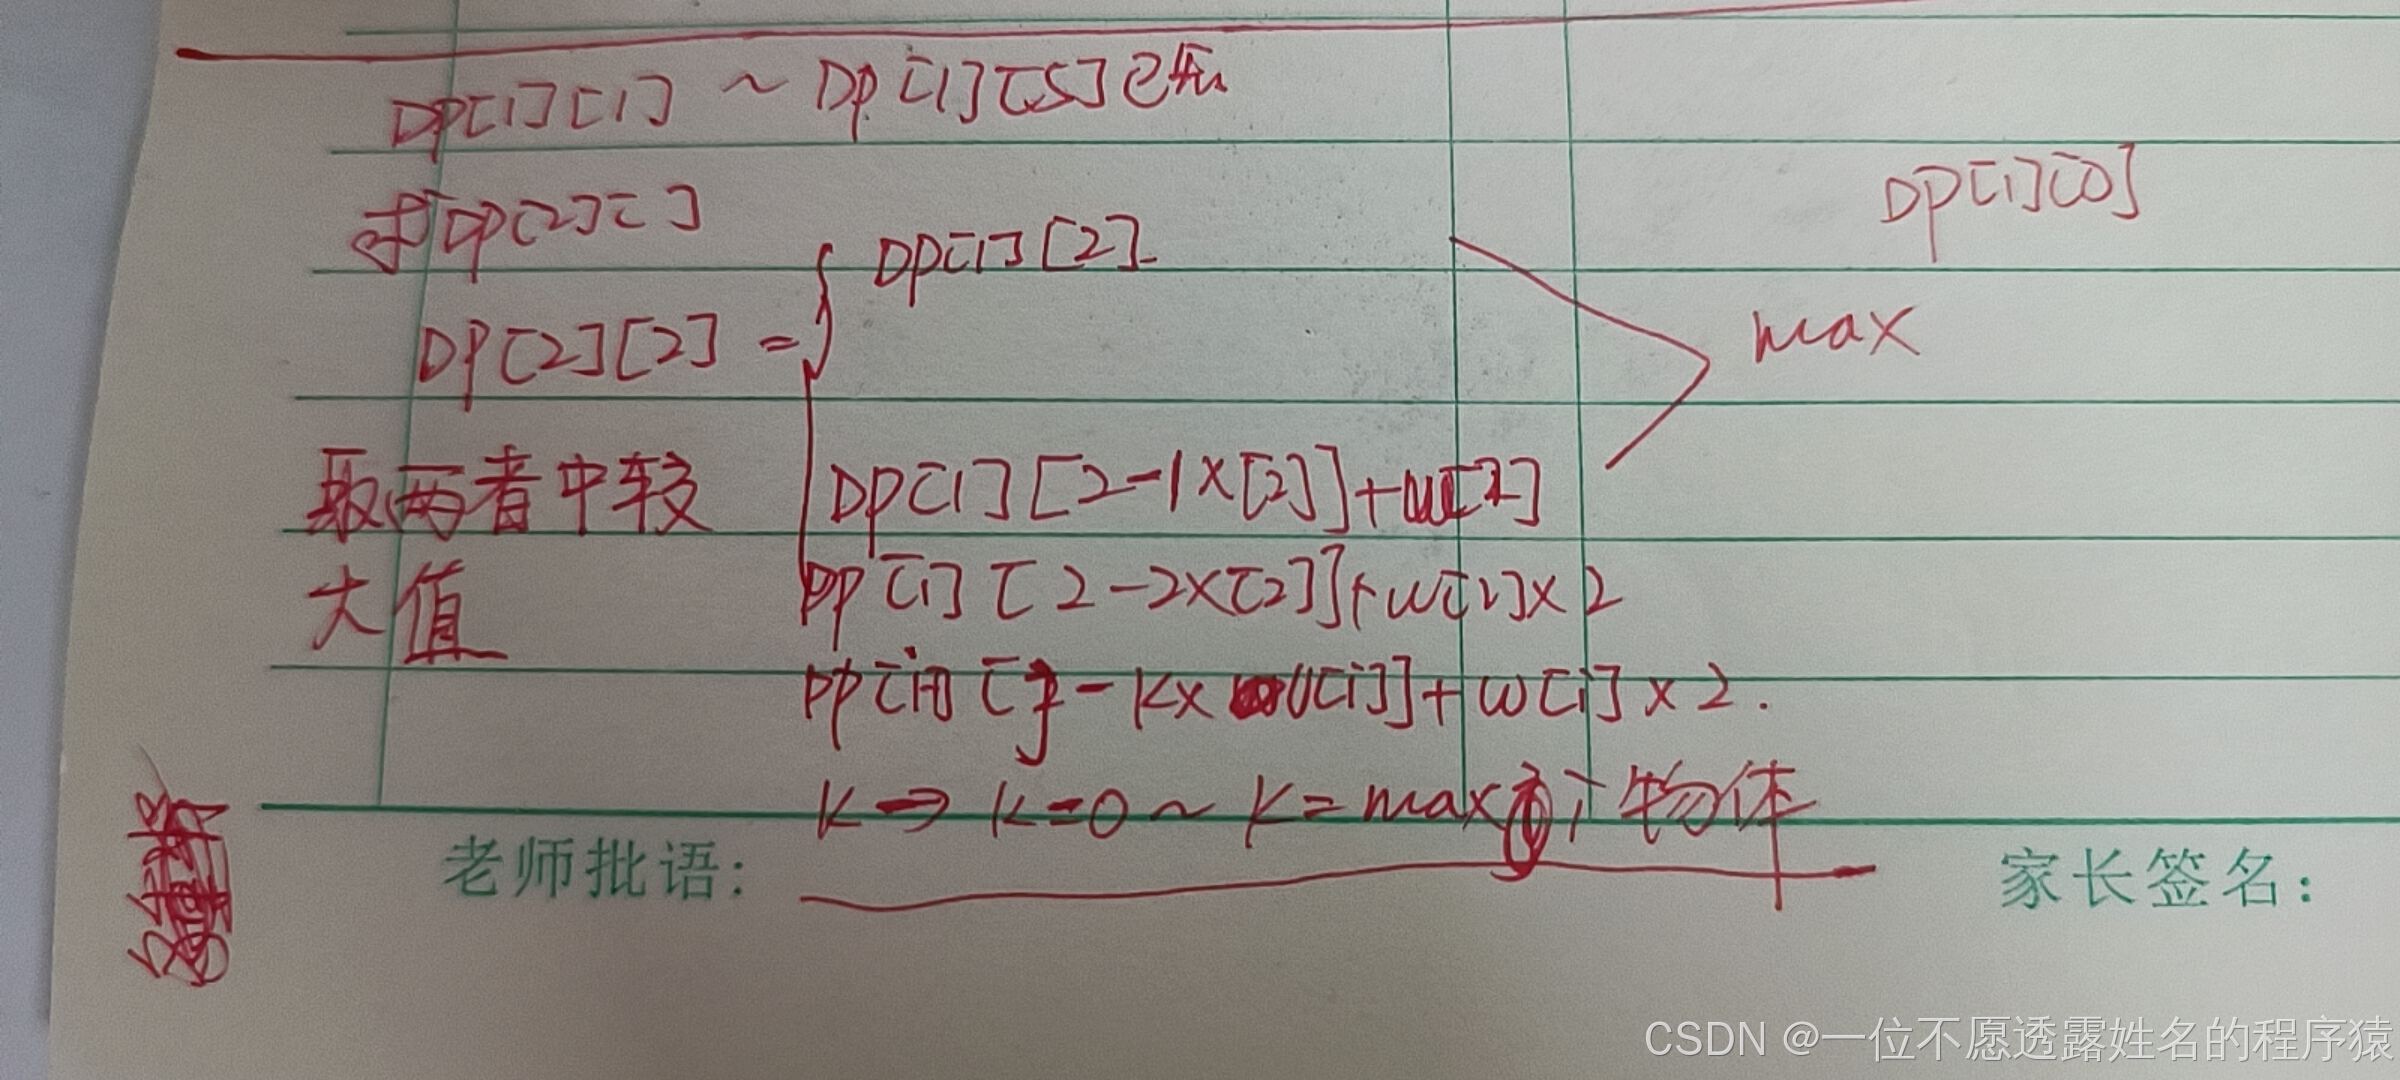 DP[1][1] ~ DP[1][5]已知
DP[1][0]
求DP[2][ ]
DP[1][2]
DP[2][2] =
max
取两者中较
大值
DP[1][2-1×[2]]+w[2]
DP[1][2-2×[2]]+w[2]×2
DP[i-1][j-K×V[i]]+w[i]×2.
K→ K=0 ~ K=max 个物体
老师批语:
家长签名:
CSDN @一位不愿透露姓名的程序猿